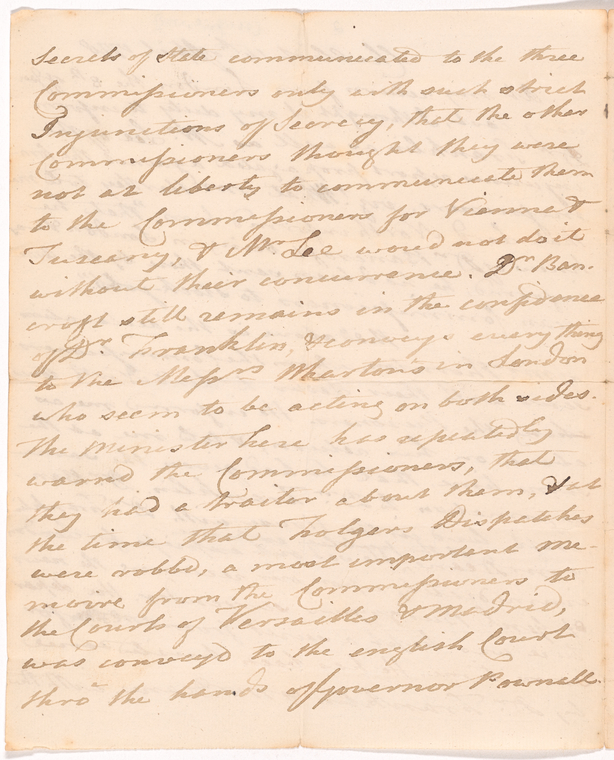 Secrets of State communicated to the three
Commissioners only with such strict
Injunctions of Secrecy, that the other
Commissioners thought they were
not at liberty to communicate them
to the Commissioners for Vienna &
Tuscany, & Mr. Lee would not do it
without their concurrence. Dr. Ban-
croft still remains in the confidence
of Dr. Franklin, & conveys every thing
to the Messrs Wharton's in London
who seem to be acting on both sides.
The Minister here has repeatedly
warnd the Commissioners, that
they had a traitor about them, & at
the time that Folgers Dispatches
were robbd, a most important me-
moire from the Commissioners to
the Courts of Versailles & Madrid,
was conveyd to the english Court
thro' the hands of Governor Pownall.